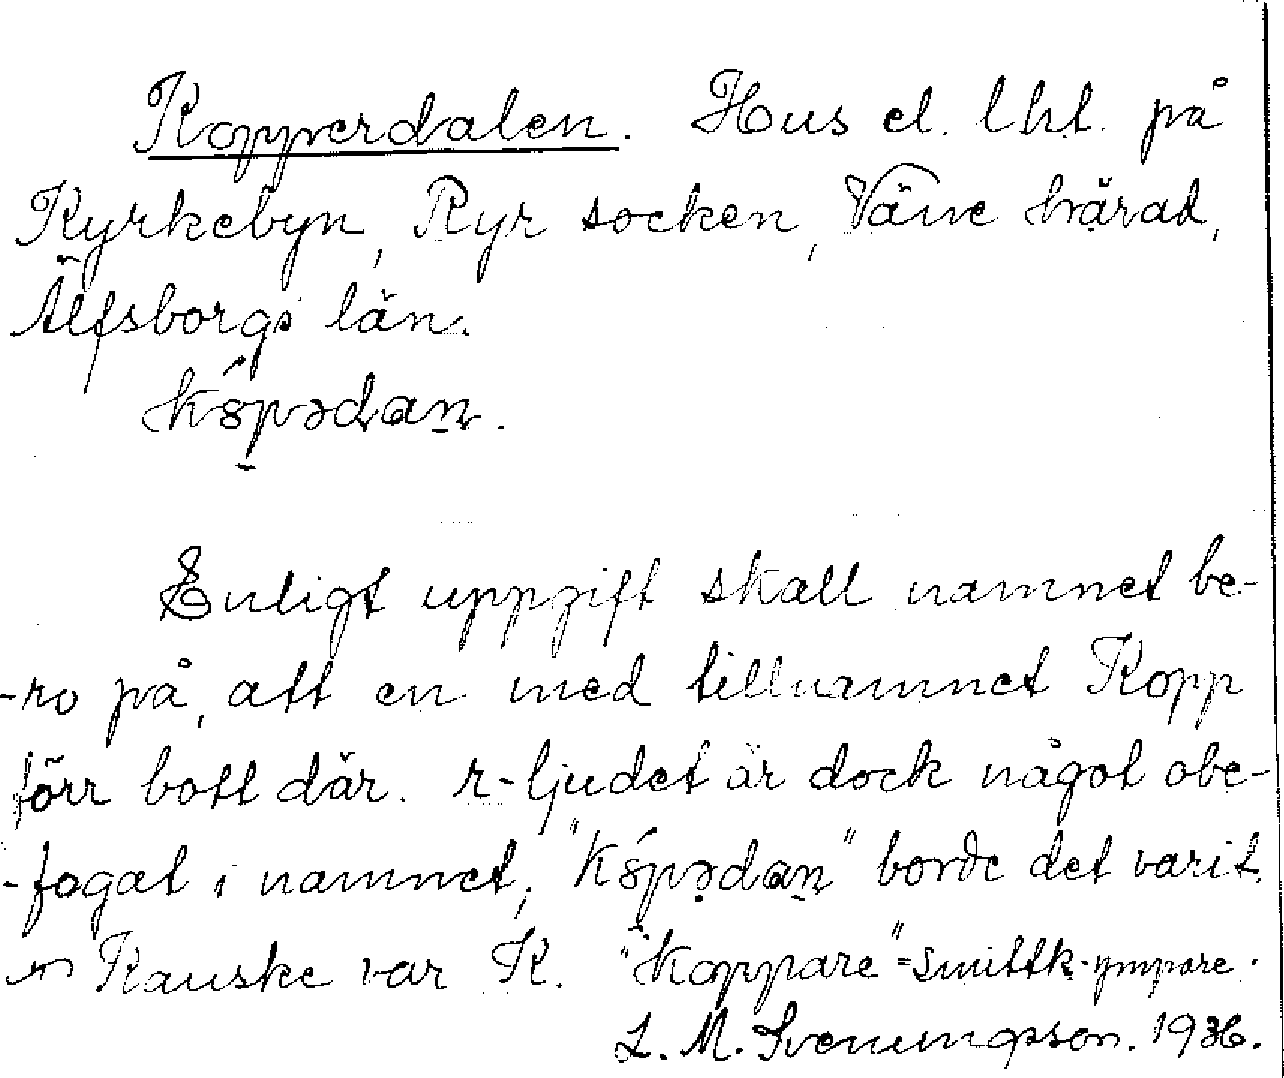 Kopperdalen. Hus el. lht. på
Kyrkebyn, Ryr socken, Väne härad,
Älfsborgs län.
Enligt uppgift skall namnet be-
-ro på, att en med tillnamnet Kopp
förr bott där. r-ljudet är dock något obe-
-fogat i namnet; borde det varit.
Kanske var K. "Koppare" = Smittk.ympare.
L. M. Svenungsson. 1936.